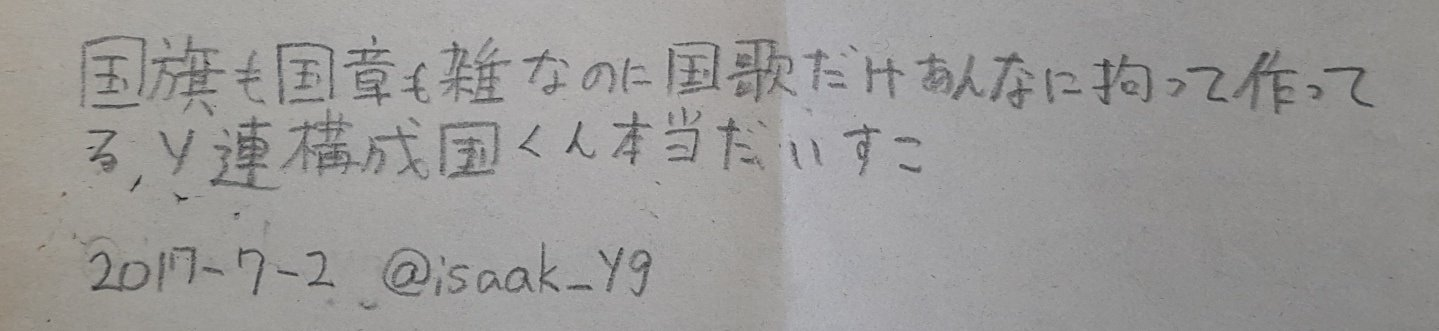 国旗も国章も雑なのに国歌だけあんなに拘って作って
る,ソ連構成国くん本当だいすこ
2017-7-2 @isaak_Yg